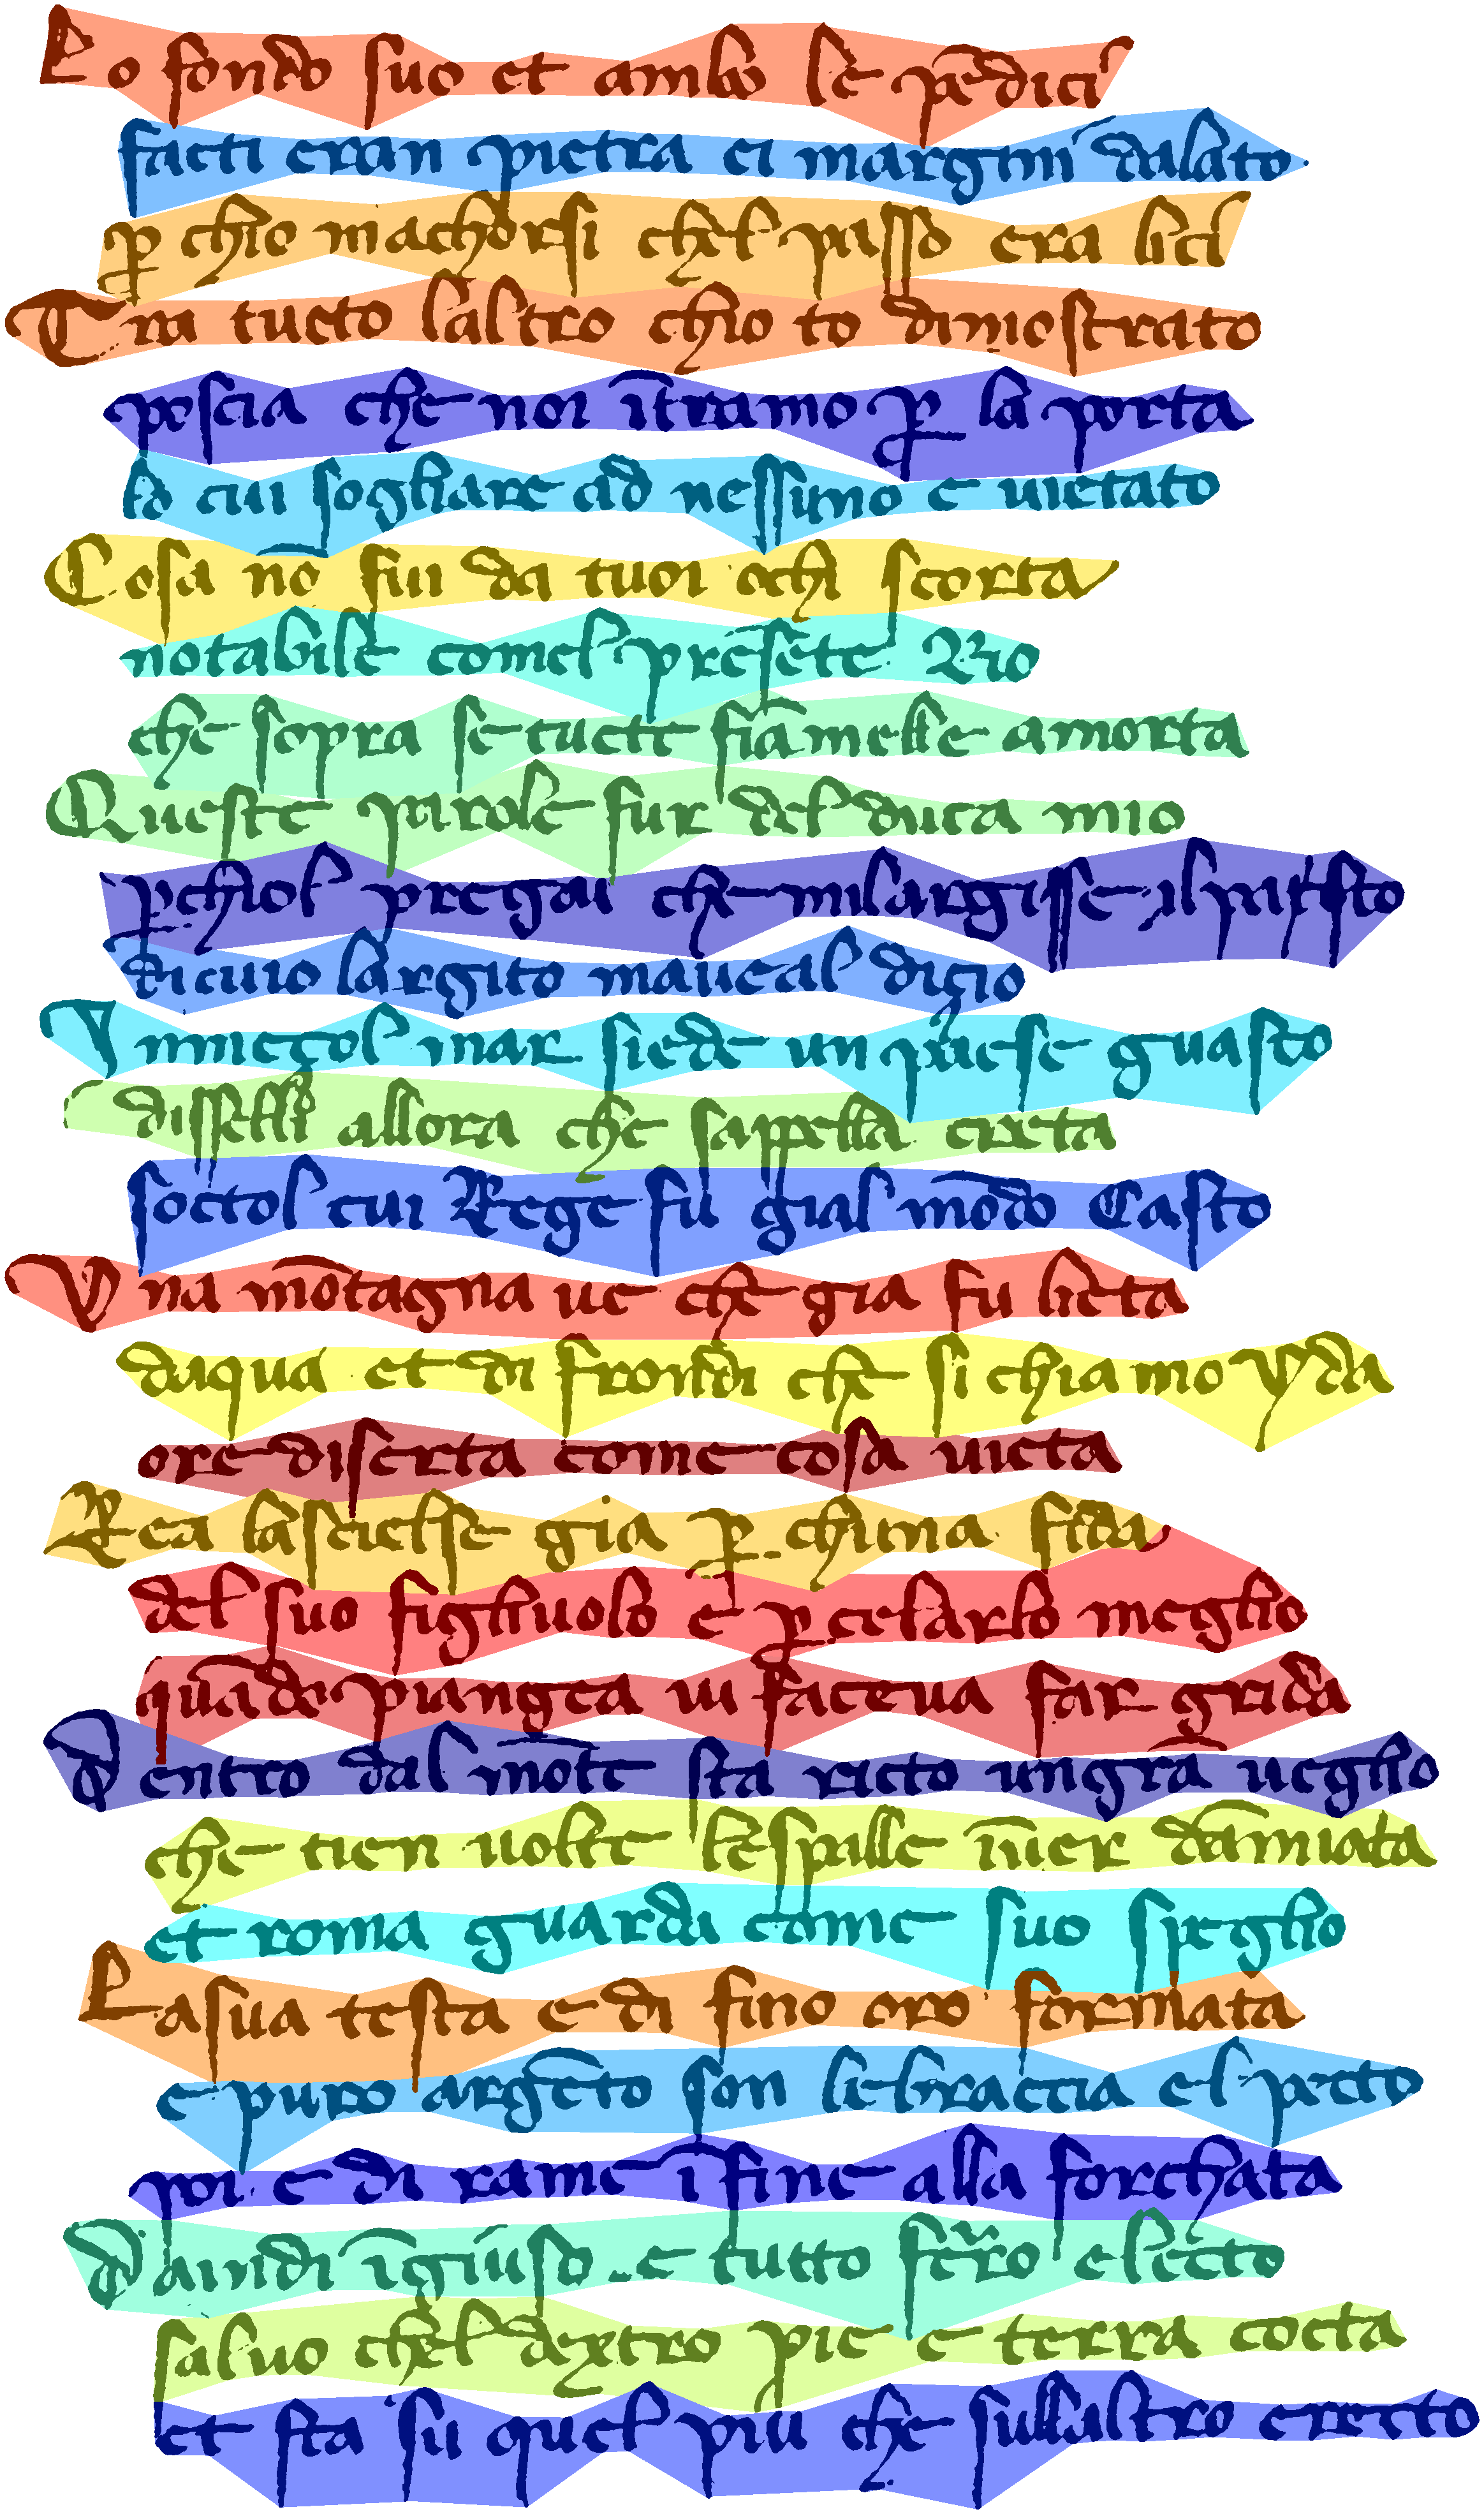 Lo fondo suo et ambo le pendici
facti eran pietra ei margini dallato
p chio macchorsi chel passo era lici
Tra tucto laltro chio to dimostrato
poscia che noi itramo p la porta
lo cui sogliare ad nessuno e uietato
Cosa nō fu da tuoi ochi scorta
notabile come l presete rio
che sopra se tucte fiamelle amorta
Queste parole fur del duca mio
p chiol pregai che milargisse il pasto
di cui largito maueal disio
In mezzol mar siede un paese guasto
diselli allora che sappella creta
soctol cui rege fu gial mōdo casto
Una mōtagna ue che gia fu lieta
daqua et di frondi che si chiamo yda
ore diserta come cosa uieta
Rea la scielse gia p chuna fida
del suo figliuolo e p celarlo meglio
quādo piangea ui faceua far grida
Dentro dal mōte sta ricto un gra ueglio
che tien uolte le spalle iuer damiata
et roma guarda come suo speglio
La sua testa e di fino oro formata
e puro argēto son le braccia el pecto
poi e di rame ī fine alla forchata
Da indi ī giuso e tutto ferro electo
saluo chel dextro pie e terra cocta
et sta su quel piu che sullaltro erecto